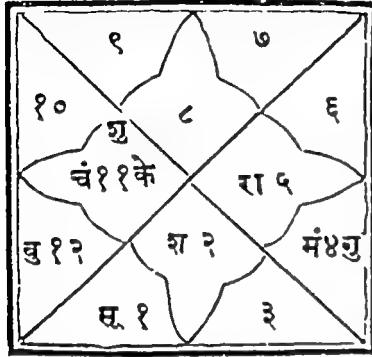 ९ ७
१० ८ ६
शु
चं११के रा ५
बु १२ श २ मं४गु
सू १ ३